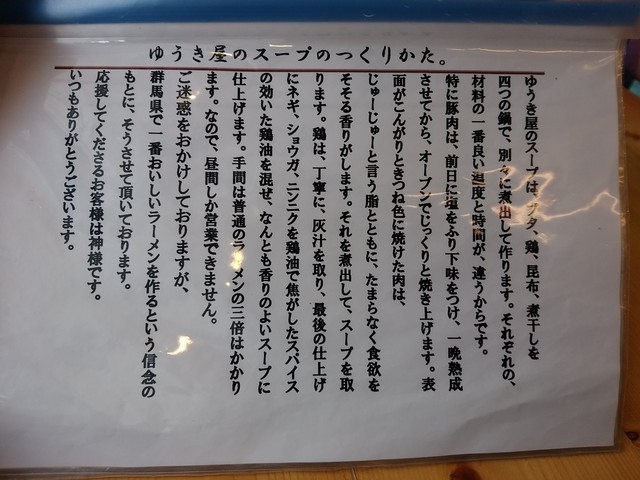 ゆうき屋のスープのつくりかた。
ゆうき屋のスープは、ブタ、鶏、昆布、煮干しを
四つの鍋で、別々に煮出して作ります。それぞれの、
材料の一番良い温度と時間が、違うからです。
特に豚肉は、前日に塩をふり下味をつけ、一晩熟成
させてから、オーブンでじっくりと焼き上げます。表
面がこんがりときつね色に焼けた肉は、
じゅーじゅーと言う脂とともに、たまらなく食欲を
そそる香りがします。それを煮出して、スープを取
ります。鶏は、丁寧に、灰汁を取り、最後の仕上げ
にネギ、ショウガ、ニンニクを鶏油で焦がしたスパイス
の効いた鶏油を混ぜ、なんとも香りのよいスープに
仕上げます。手間は普通のラーメンの三倍はかかり
ます。なので、昼間しか営業できません。
ご迷惑をおかけしておりますが、
群馬県で一番おいしいラーメンを作るという信念の
もとに、そうさせて頂いております。
応援してくださるお客様は神様です。
いつもありがとうございます。